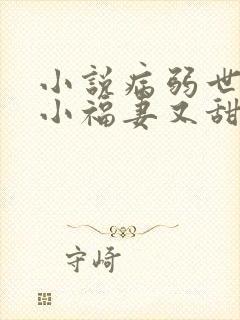 小説病弱世
小福妻又甜
守崎